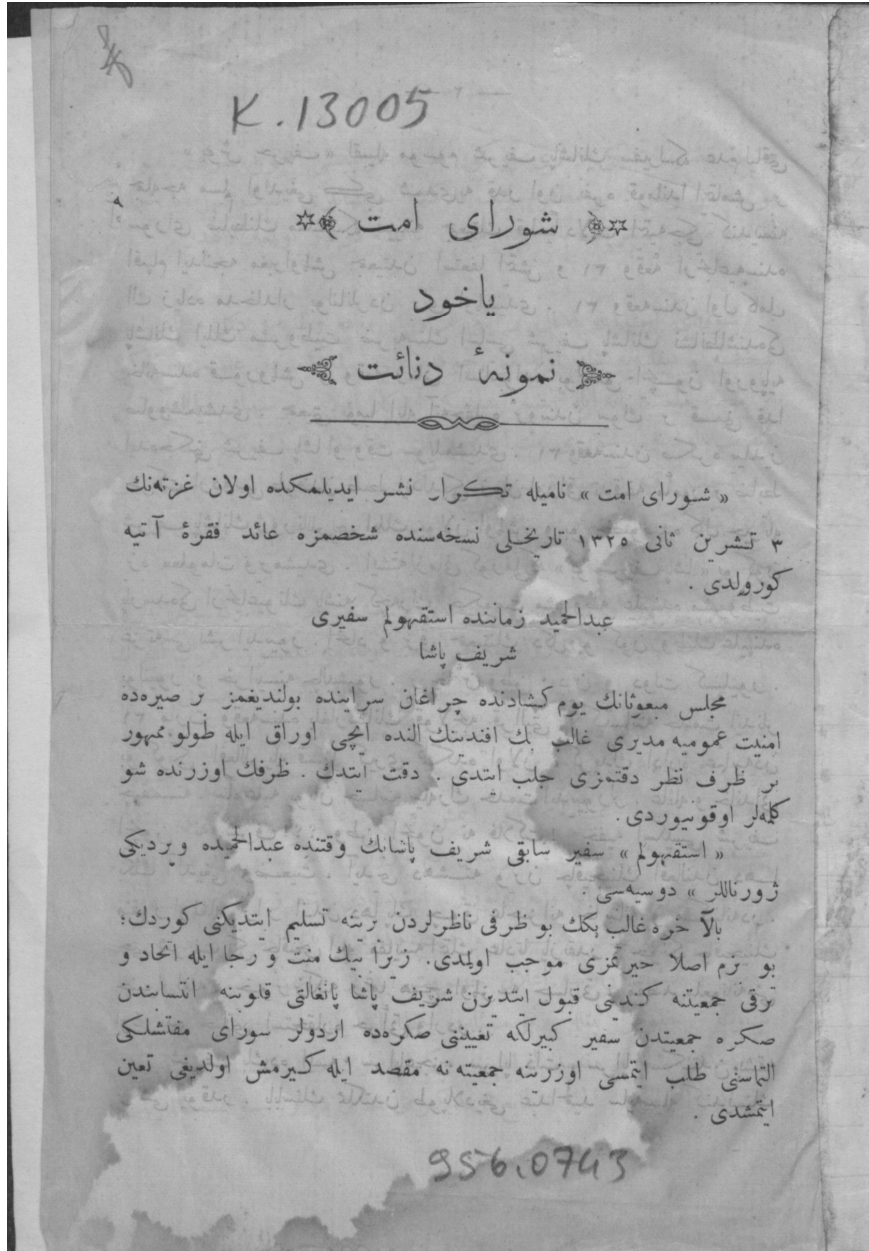 K. 13005
شورای امت
یاخود
نمونهٔ دنائت
« شورای امت » نامیله تکرار نشر ایدیلمکده اولان غزته‌نك
٣ تشرین ثانی ١٣٢٥ تاریخلی نسخه‌سنده شخصمزه عائد فقرهٔ آتیه
کورولدی .
عبدالحمید زماننده استقهولم سفیری
شریف پاشا
مجلس مبعوثانك یوم کشادنده چراغان سراینده بولندیغمز بر صیره‌ده
امنیت عمومیه مدیری غالب بك افندینك النده ایچی اوراق ایله طولو ممهور
بر ظرف نظر دقتمزی جلب ایتدی . دقت ایتدك . ظرفك اوزرنده شو
کلمه‌لر اوقونیوردی .
« استقهولم » سفیر سابقی شریف پاشانك وقتنده عبدالحمیده ویردیکی
ژورناللر » دوسیه‌سی .
بالآخره غالب بکك بو ظرفی ناظرلردن برینه تسلیم ایتدیکنی کوردك؛
بو بزم اصلا حیرتمزی موجب اولمدی. زیرا بیك منت و رجا ایله اتحاد و
ترقی جمعیتنه کندینی قبول ایتدیرن شریف پاشا پانغالتی قلوبنه انتسابندن
صکره جمعیتدن سفیر کبیرلکه تعییننی صکره‌ده اردولر سورای مفتشلکی
التماسنی طلب ایتمسی اوزرینه جمعیته نه مقصد ایله کیرمش اولدیغی تعین
ایتمشدی .
956.0743